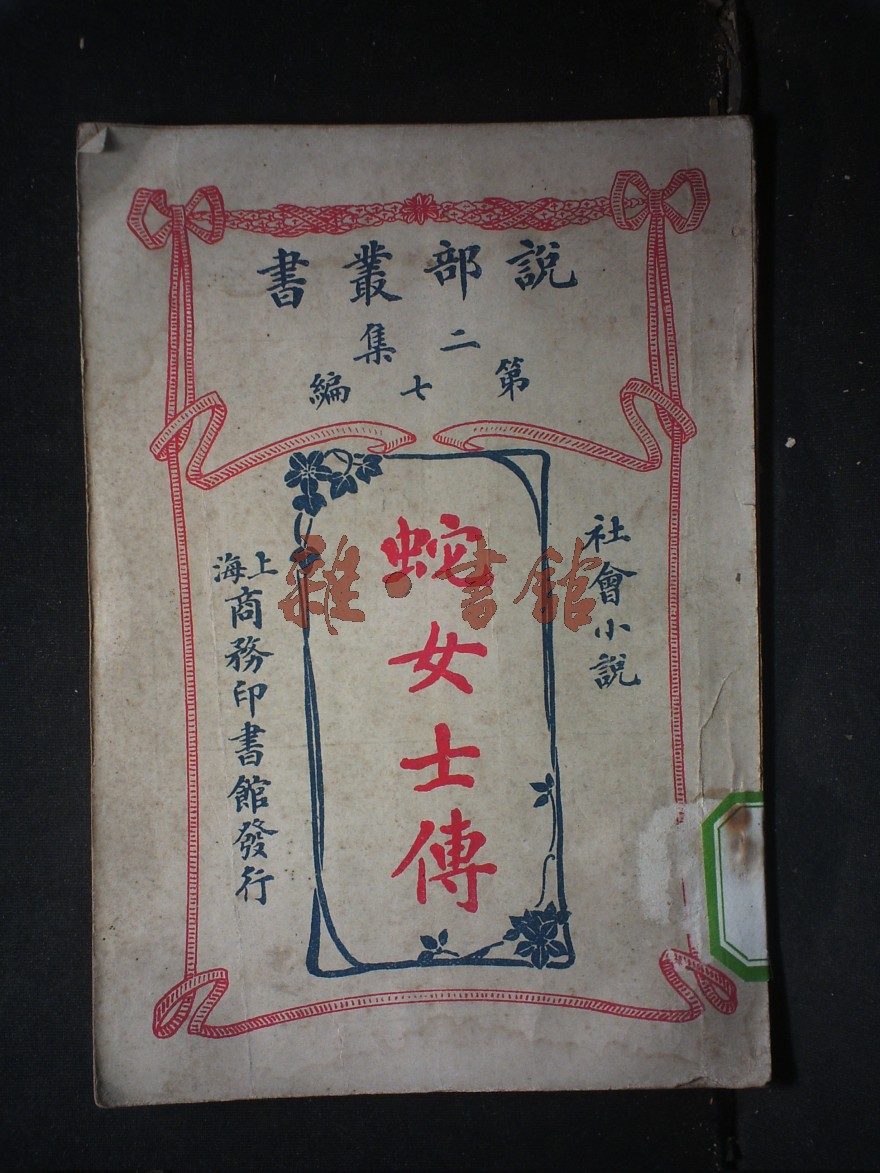 說部叢書
二集
第七編
社會小說
蛇女士傳
上海商務印書館發行
雜·書館